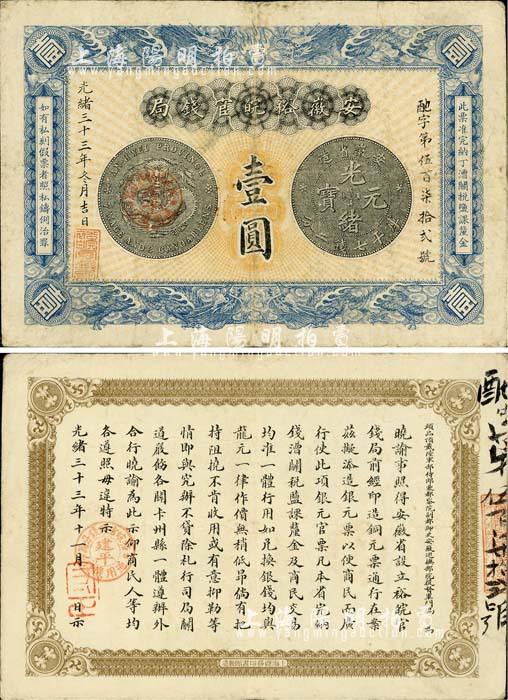 上海陽明拍賣
壹
壹
安徽裕皖官錢局
光緒三十三年冬月吉日
酏字第伍百柒拾貳號
此票准完納丁漕關稅鹽課釐金
如有私刻假票者照私鑄例治罪
AN-HUI PROVINCE
安徽省造
光緒元寶
壹圓
壹
壹
上海陽明拍賣
曉諭事照得安徽省設立裕皖官
錢局前經印造銅元票通行在案
茲擬添造銀元票以便商民而廣
行使此項銀元官票凡本省完納
錢漕關稅鹽課釐金及商民交易
均准一體行用如兌換銀錢均與
龍元一律作價無稍低昂倘有把
持阻撓不肯收用或有意抑勒等
情即與究辦不貸除札行司局關
道嚴飭各關卡州縣一體遵辦外
合行曉諭為此示仰商民人等均
各遵照毋違特示
光緒三十三年十一月 日示
上海陽明拍賣